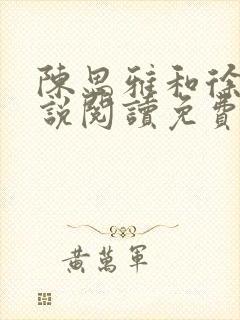 陳思雅和徐
說閱讀免費
黃萬軍